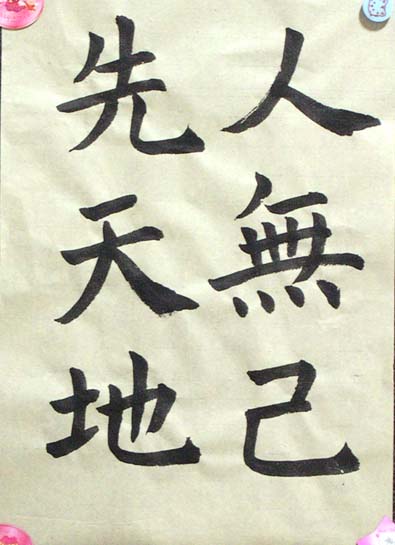 人無己
先天地